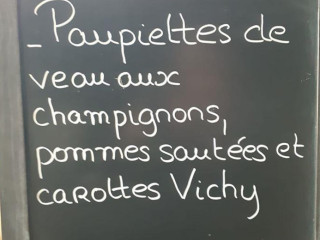 - Paupiettes de
veau aux
champignons,
pommes sautées et
carottes Vichy